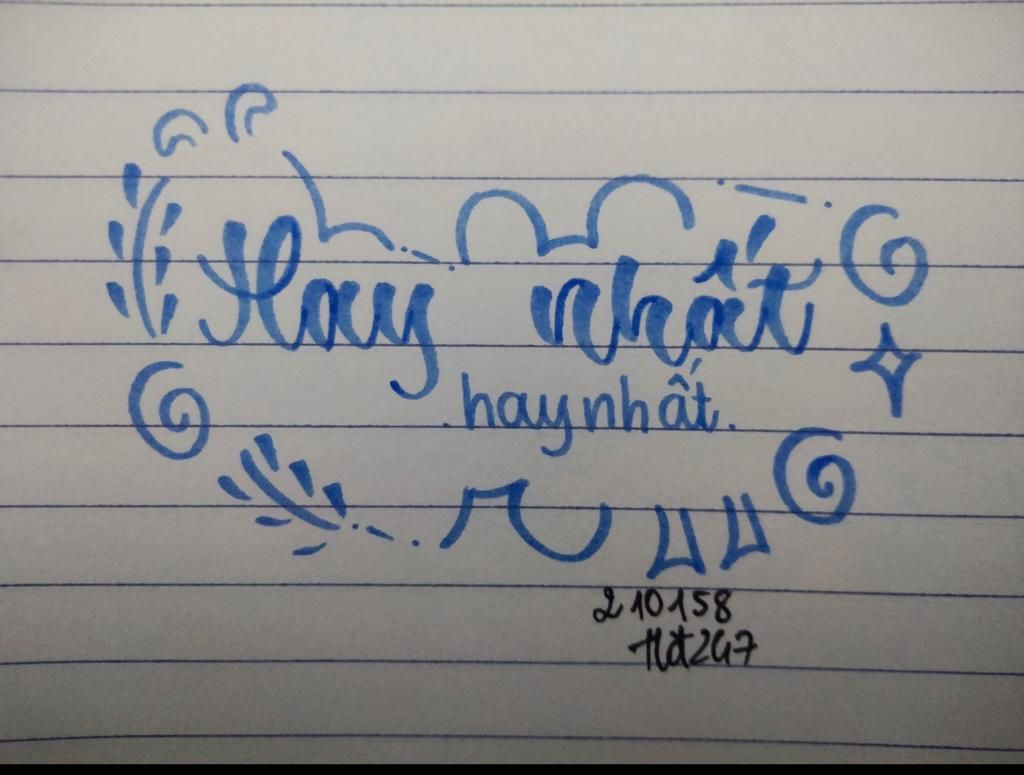 Hay nhất
. hay nhất .
210158
Hd247